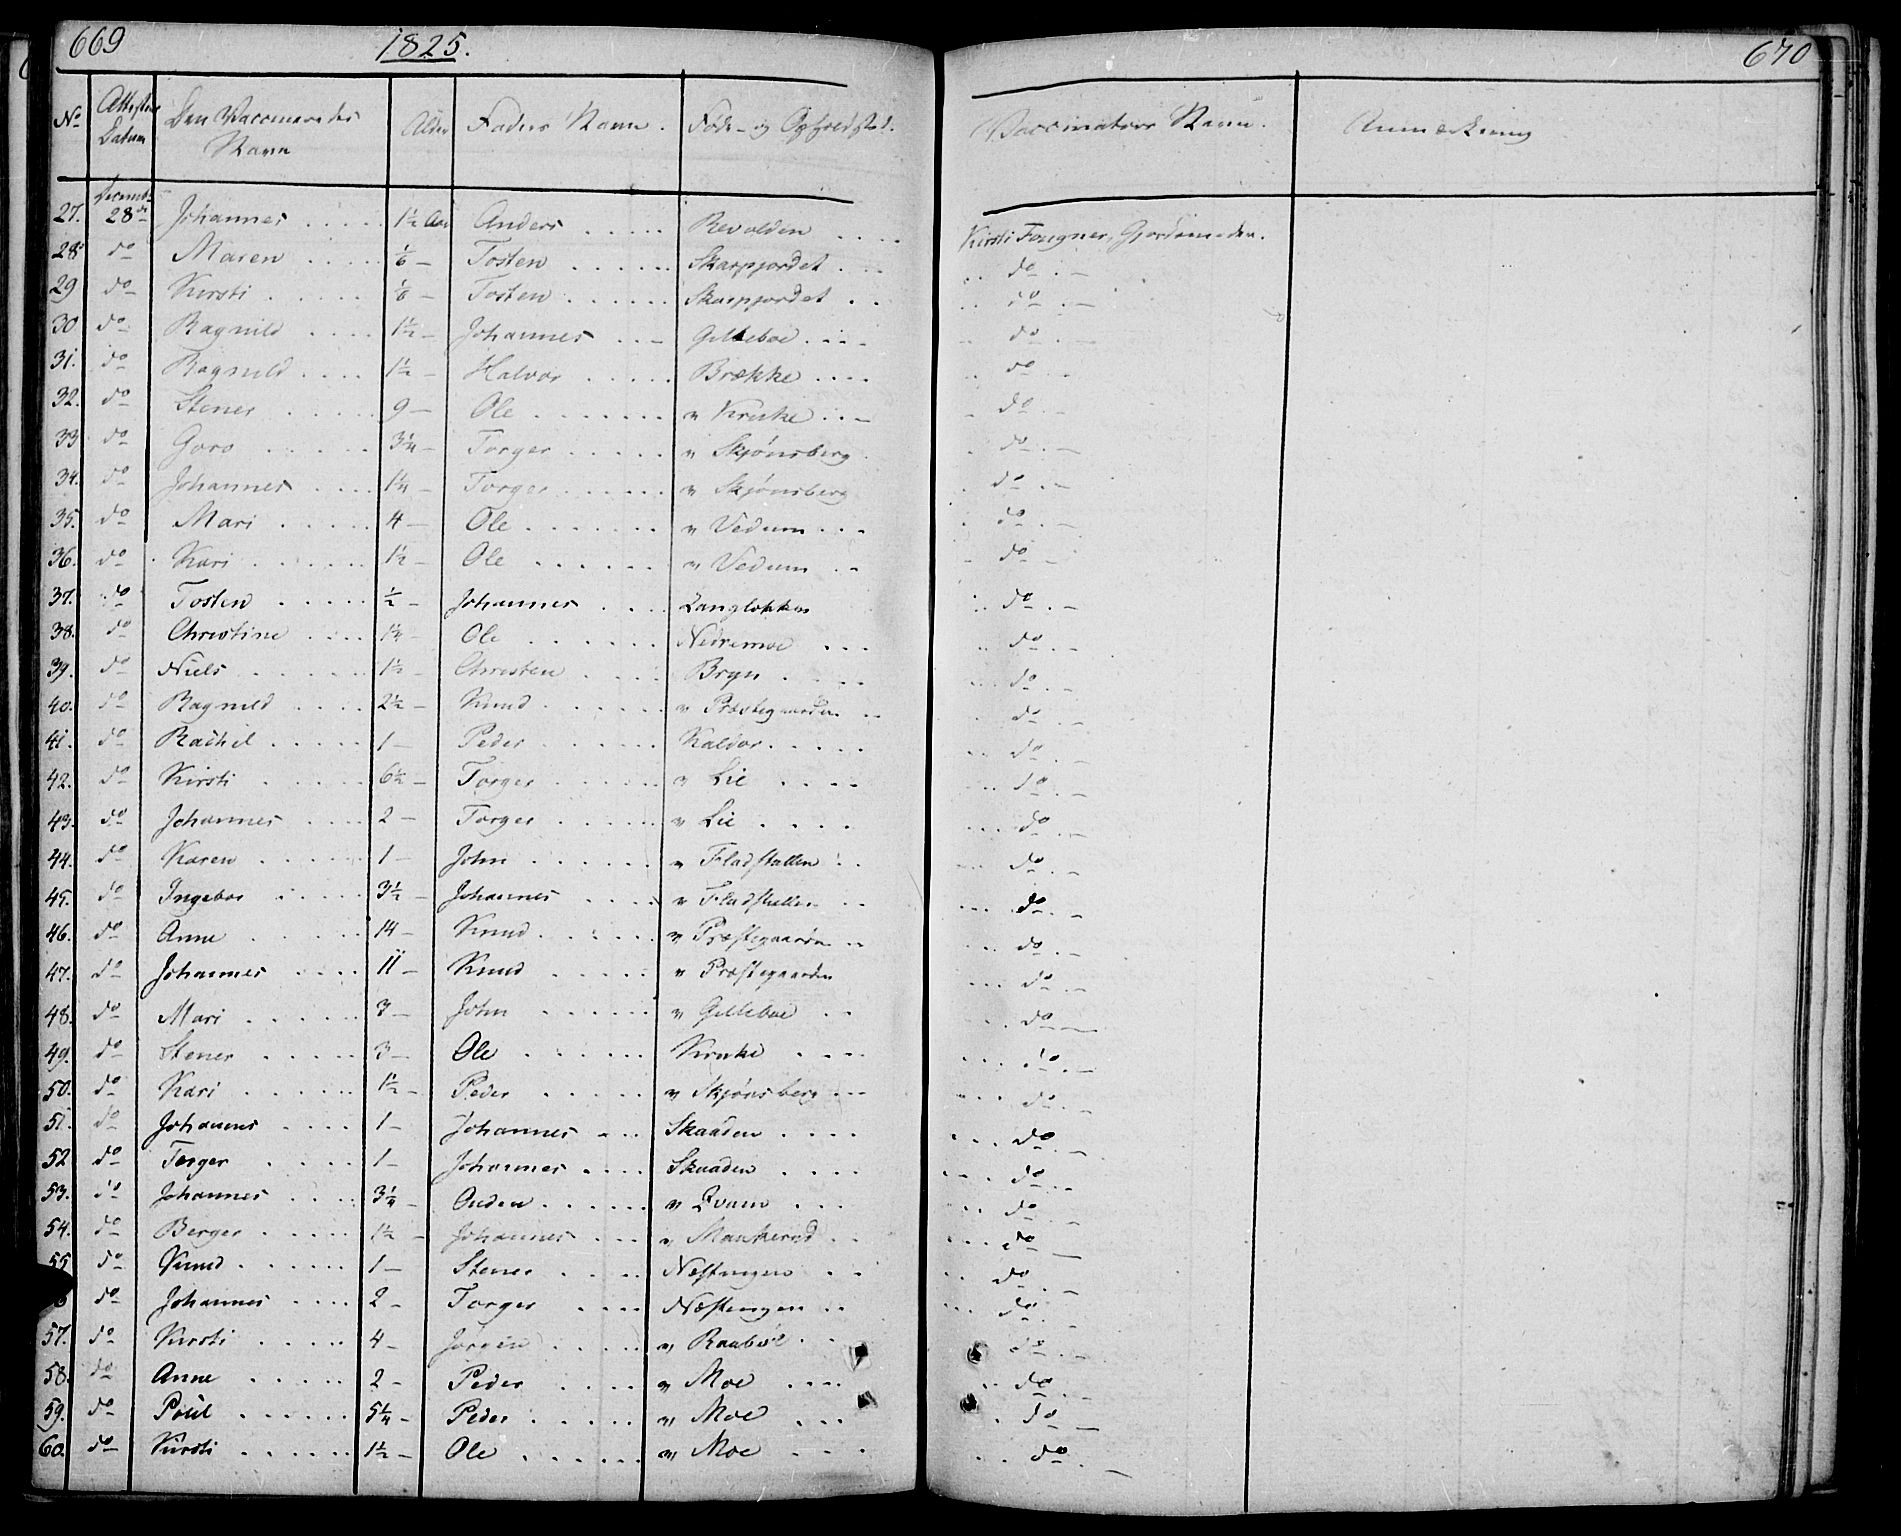 669 1825. 670
No Attestens Datum Den Vaccineredes Navn Alder Faders Navn. Føde- og Opholdsted. Vaccinators Navn. Anmærkning
27. December 28de Johannes 1½ Aar Anders Revolden Kirsti Fougner, Gjordemoder.
28 do Maren 1/6 — Tosten Skarpjordet do —
29 do Kirsti 1/6 — Tosten Skarpjordet do —
30 do Ragnild 1½ — Johannes Gilleboe do —
31. do Ragnild 1½ — Halvor Brække do —
32. do Stener 9 — Ole " Kruke do —
33 do Goro 3¼ — Torger " Skjønsberg do —
34. do Johannes 1¼ — Torger " Skjønsberg do —
35. do Mari 4 — Ole " Vedum do —
36. do Kari 1½ — Ole " Vedum do —
37. do Tosten ½ — Johannes Langlokken do —
38. do Christine 1¼ — Ole Nedremoe do —
39. do Niels 1½ — Christen Bryn do —
40. do Ragnild 2½ — Knud " Præstegaarden do —
41. do Rachel 1 — Peder Kaldor do —
42. do Kirsti 6½ — Torger " Lie do —
43. do Johannes 2 — Torger " Lie do —
44. do Karen 1 — John " Fladstallen do —
45. do Ingebor 3½ — Johannes " Fladstallen do —
46. do Anne 14 — Knud " Præstegaarden do —
47. do Johannes 11 — Knud " Præstegaarden do —
48. do Mari 3 — John " Gilleboe do —
49. do Stener 3 — Ole Kruke do —
50. do Kari 1½ — Peder " Skjønsberg do —
51. do Johannes 1 — Johannes Skaaden do —
52 do Torger 1 — Johannes Skaaden do —
53. do Johannes 3¼ — Ouden " Qvam do —
54. do Berger 1½ — Johannes " do —
55 do Knud 1 — Stener Næstingen do —
do Johannes 2 — Torger Næstingen do —
57. do Kirsti 4 — Jørgen " Raabøl do —
58. do Anne 2 — Peder " Moe do —
59. do Poul 5¼ — Peder " Moe do —
60. do Kirsti 1½ — Ole " Moe do —